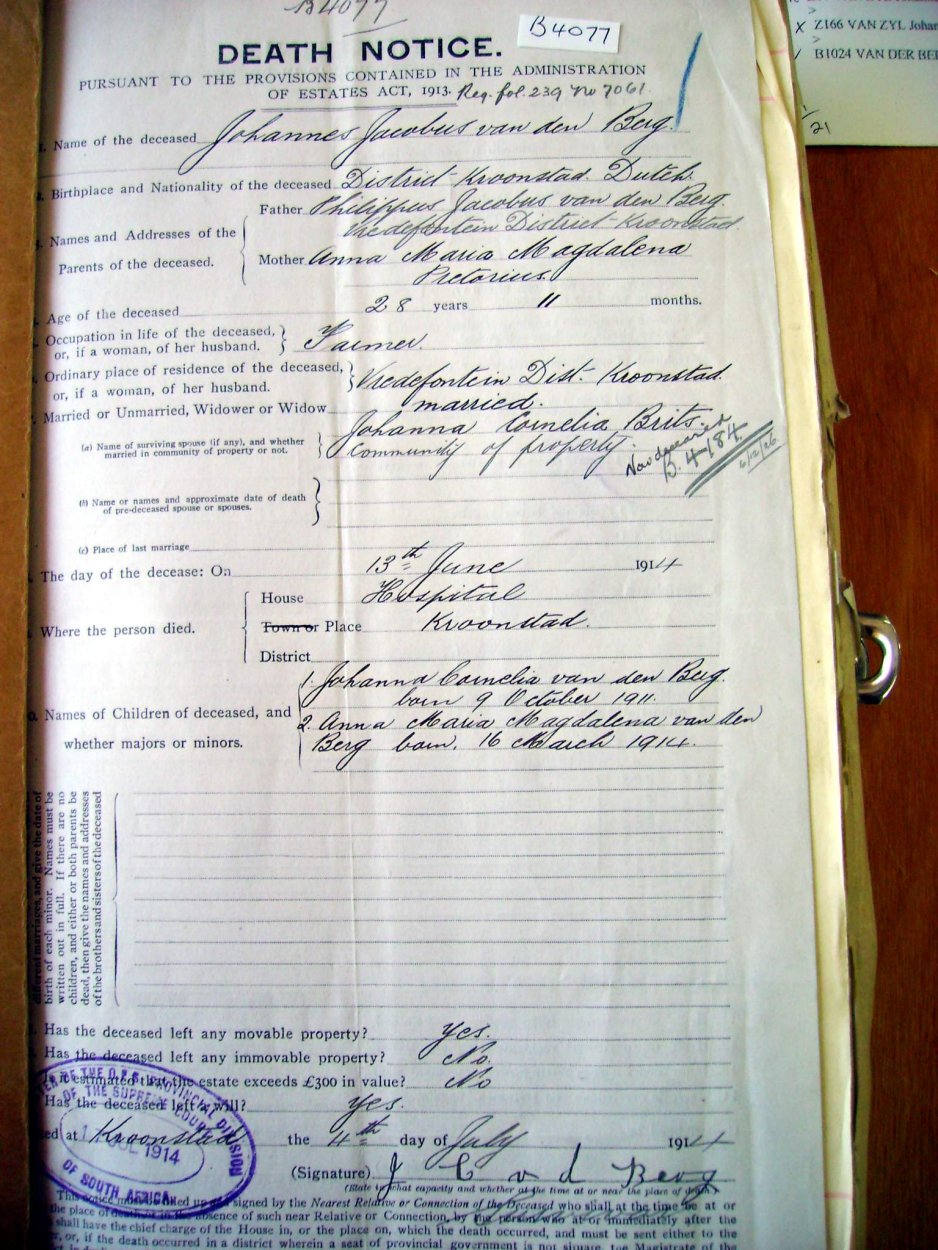 B4077
B4077
Z166 VAN ZYL Johan
B1024 VAN DER BE
21
DEATH NOTICE.
PURSUANT TO THE PROVISIONS CONTAINED IN THE ADMINISTRATION
OF ESTATES ACT, 1913. Reg. fol. 239 No 7061.
Name of the deceased Johannes Jacobus van den Berg.
Birthplace and Nationality of the deceased District Kroonstad. Dutch.
Names and Addresses of the Parents of the deceased.
Father Philippus Jacobus van den Berg.
Vredefontein District Kroonstad
Mother Anna Maria Magdalena
Pretorius.
Age of the deceased 28 years 11 months.
Occupation in life of the deceased,
or, if a woman, of her husband. Farmer.
Ordinary place of residence of the deceased,
or, if a woman, of her husband. Vredefontein Dist. Kroonstad.
Married or Unmarried, Widower or Widow married.
(a) Name of surviving spouse (if any), and whether
married in community of property or not.
Johanna Cornelia Brits.
Community of property.
Now deceased
B.4184
6/12/26
(b) Name or names and approximate date of death
of pre-deceased spouse or spouses.
(c) Place of last marriage
The day of the decease: On 13th June 1914
Where the person died.
House Hospital
Town or Place Kroonstad.
District
Names of Children of deceased, and
whether majors or minors.
1. Johanna Cornelia van den Berg.
born 9 October 1911.
2. Anna Maria Magdalena van den
Berg born. 16 March 1914.
different marriages, and give the date of
birth of each minor. Names must be
written out in full. If there are no
children, and either or both parents be
dead, then give the names and addresses
of the brothers and sisters of the deceased
Has the deceased left any movable property? Yes.
Has the deceased left any immovable property? No.
Is it estimated that the estate exceeds £300 in value? No
Has the deceased left a will? Yes.
ed at Kroonstad the 4th day of July 1914
OF THE O.F.S. PROVINCIAL DIVISION
OF THE SUPREME COURT
JUL 1914
OF SOUTH AFRICA
(Signature) J C v d Berg
(State in what capacity and whether at the time at or near the place of death.)
This notice must be filled up and signed by the Nearest Relative or Connection of the Deceased who shall at the time be at or
the place of death, or in the absence of such near Relative or Connection, by the person who at or immediately after the
shall have the chief charge of the House in, or the place on, which the death occurred, and must be sent either to the
or, if the death occurred in a district wherein a seat of provincial government is not situate, the Magistrate of the